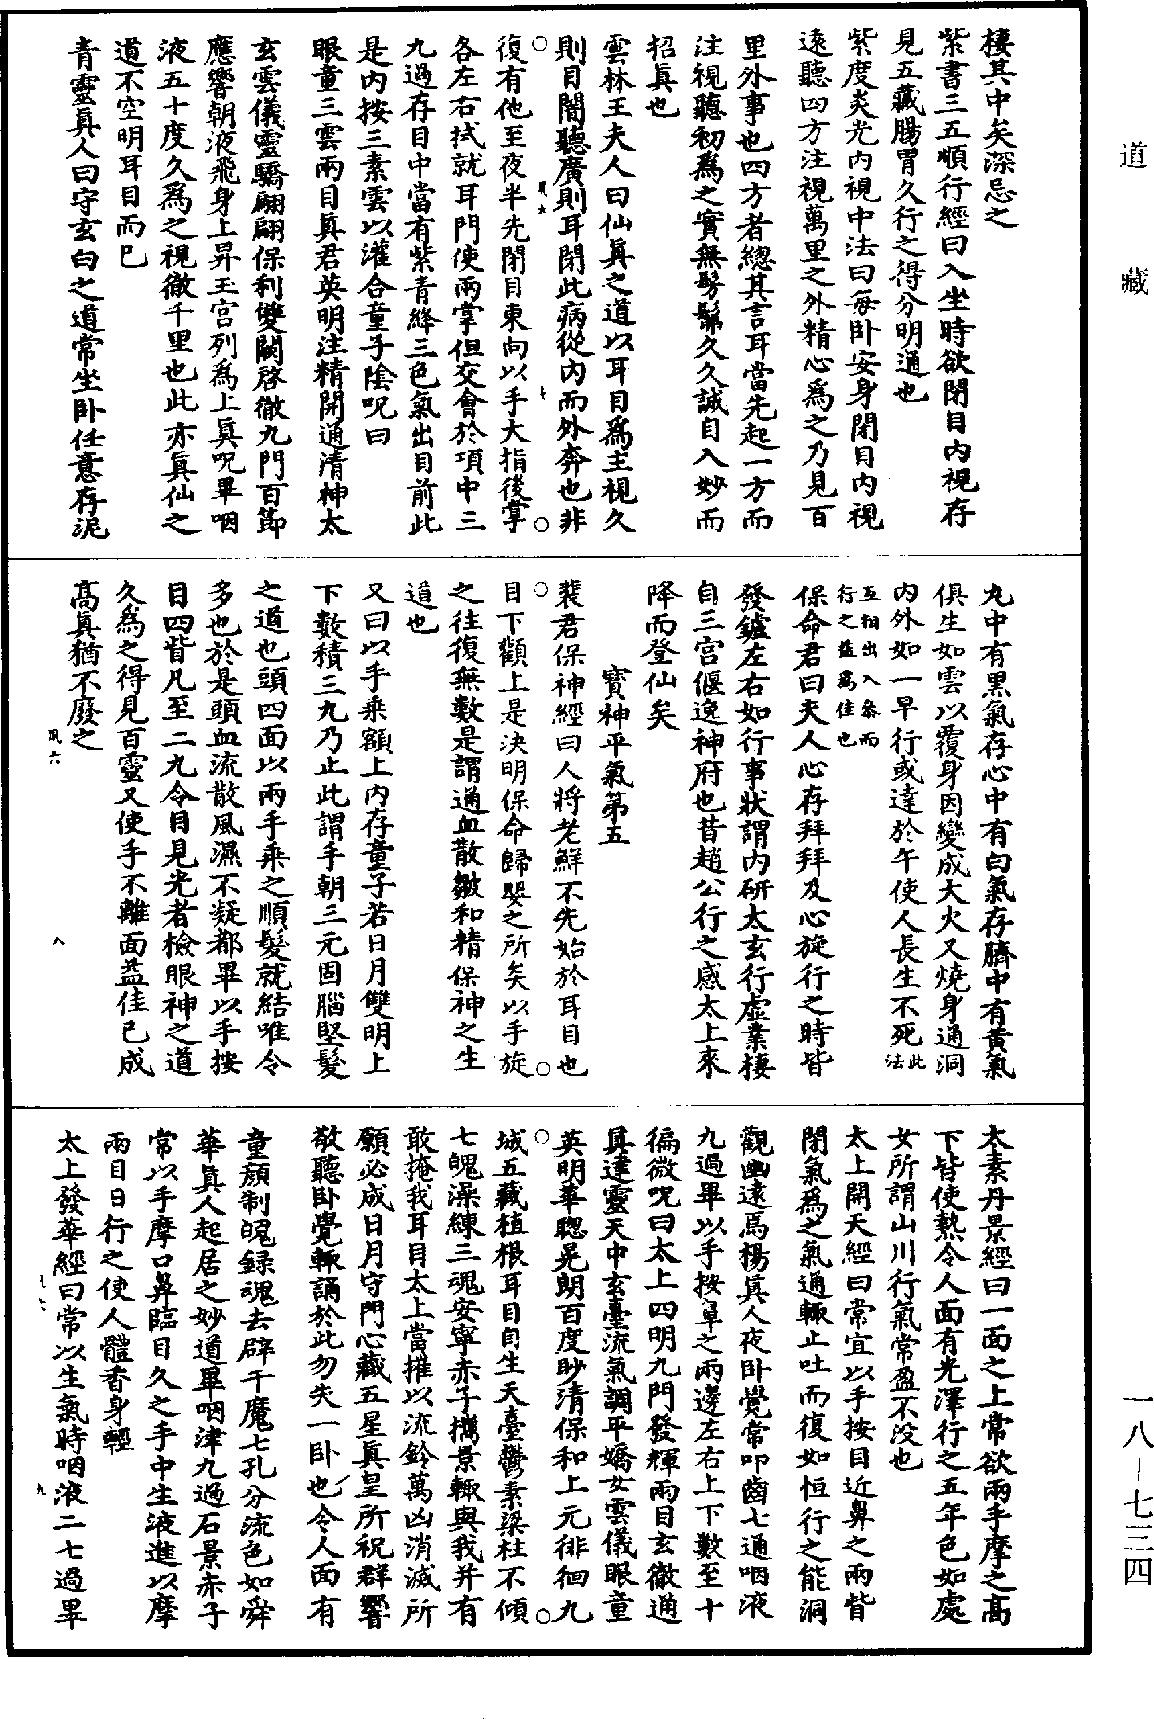 道藏
棲其中矣深忌之
紫書三五順行經曰入坐時欲閉目內視存
見五藏腸胃久行之得分明通也
紫度炎光內視中法曰每卧安身閉目內視
遠聽四方注視萬里之外精心為之乃見百
里外事也四方者總其言耳當先起一方而
注視聽初為之實無髣髴久久誠自入妙而
招真也
雲林王夫人曰仙真之道以耳目為主視久
則目闇聽廣則耳閉此病從內而外奔也非
復有他至夜半先閉目東向以手大指後掌
各左右拭就耳門使兩掌但交會於項中三
九過存目中當有紫青絳三色氣出目前此
是內按三素雲以灌合童子陰呪曰
眼童三雲兩目真君英明注精開通清神太
玄雲儀靈驕翩翩保利雙闕啓徹九門百節
應響朝液飛身上昇玉宮列為上真呪畢咽
液五十度久為之視徹千里也此亦真仙之
道不空明耳目而已
青靈真人曰守玄白之道常坐卧任意存泥
丸中有黑氣存心中有白氣存臍中有黃氣
俱生如雲以覆身因變成大火又燒身通洞
內外如一旱行或達於午使人長生不死此法
互相出入參而
行之益為佳也
保命君曰夫人心存拜拜及心旋行之時皆
發鑪左右如行事狀謂內研太玄行虛業棲
自三宮偃逸神府也昔趙公行之感太上來
降而登仙矣
寶神平氣第五
裴君保神經曰人將老鮮不先始於耳目也
目下顴上是決明保命歸嬰之所矣以手旋
之往復無數是謂通血散皺和精保神之生
道也
又曰以手乘額上內存童子若日月雙明上
下數積三九乃止此謂手朝三元固腦堅髮
之道也頭四面以兩手乘之順髮就結唯令
多也於是頭血流散風濕不凝都畢以手按
目四眥凡至二九令目見光者檢眼神之道
久為之得見百靈又使手不離面益佳已成
高真猶不廢之
夙六
八
太素丹景經曰一面之上常欲兩手摩之高
下皆使熱令人面有光澤行之五年色如處
女所謂山川行氣常盈不沒也
太上開天經曰常宜以手按目近鼻之兩眥
閉氣為之氣通輒止吐而復如恒行之能洞
觀幽遠焉楊真人夜卧覺常叩齒七通咽液
九過畢以手按鼻之兩邊左右上下數至十
徧微呪曰太上四明九門發輝兩目玄徹通
真達靈天中玄臺流氣調平嬌女雲儀眼童
英明華聰晃朗百度眇清保和上元徘徊九
城五藏植根耳目自生天臺鬱素梁柱不傾
七魄澡練三魂安寧赤子攜景輒與我并有
敢掩我耳目太上當摧以流鈴萬凶消滅所
願必成日月守門心藏五星真皇所祝群響
敬聽卧覺輒誦於此勿失一卧也令人面有
童顏制魄錄魂去辟千魔七孔分流色如舜
華真人起居之妙道畢咽津九過石景赤子
常以手摩口鼻臨目久之手中生液進以摩
兩目日行之使人體香身輕
太上發華經曰常以生氣時咽液二七過畢
一八－七三四